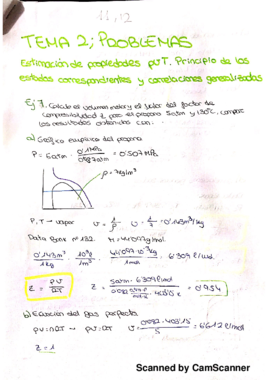 11,12
TEMA 2; PROBLEMAS
Estimación de propiedades pvT. Principio de los
estados correspondientes y correlaciones generalizadas
Ej 7. Calcule el volumen molar y el valor del factor de
compresibilidad z, para el propano 5atm y 130°C, compare
los resultados obtenidos con.
a) Gráfico empírico del propano
P = 5atm · 0'1MPa / 0'987atm = 0'507 MPa
ρ = 7kg/m³
P, T → vapor v = 1/ρ v = 1/7 = 0'143m³/kg
M = 44'097g/mol
0'143m³/1kg 10³l/1m³ 44'097·10⁻³kg/1mol = 6'309 l/mol
z = PV/RT z = 5atm · 6'309 l/mol / 0'082 · 403'15 = 0'954
b) Ecuación del gas perfecto
PV = nRT → PV = RT v = 0'082 · 403'15 / 5 = 6'612 l/mol
z = 1
Scanned by CamScanner